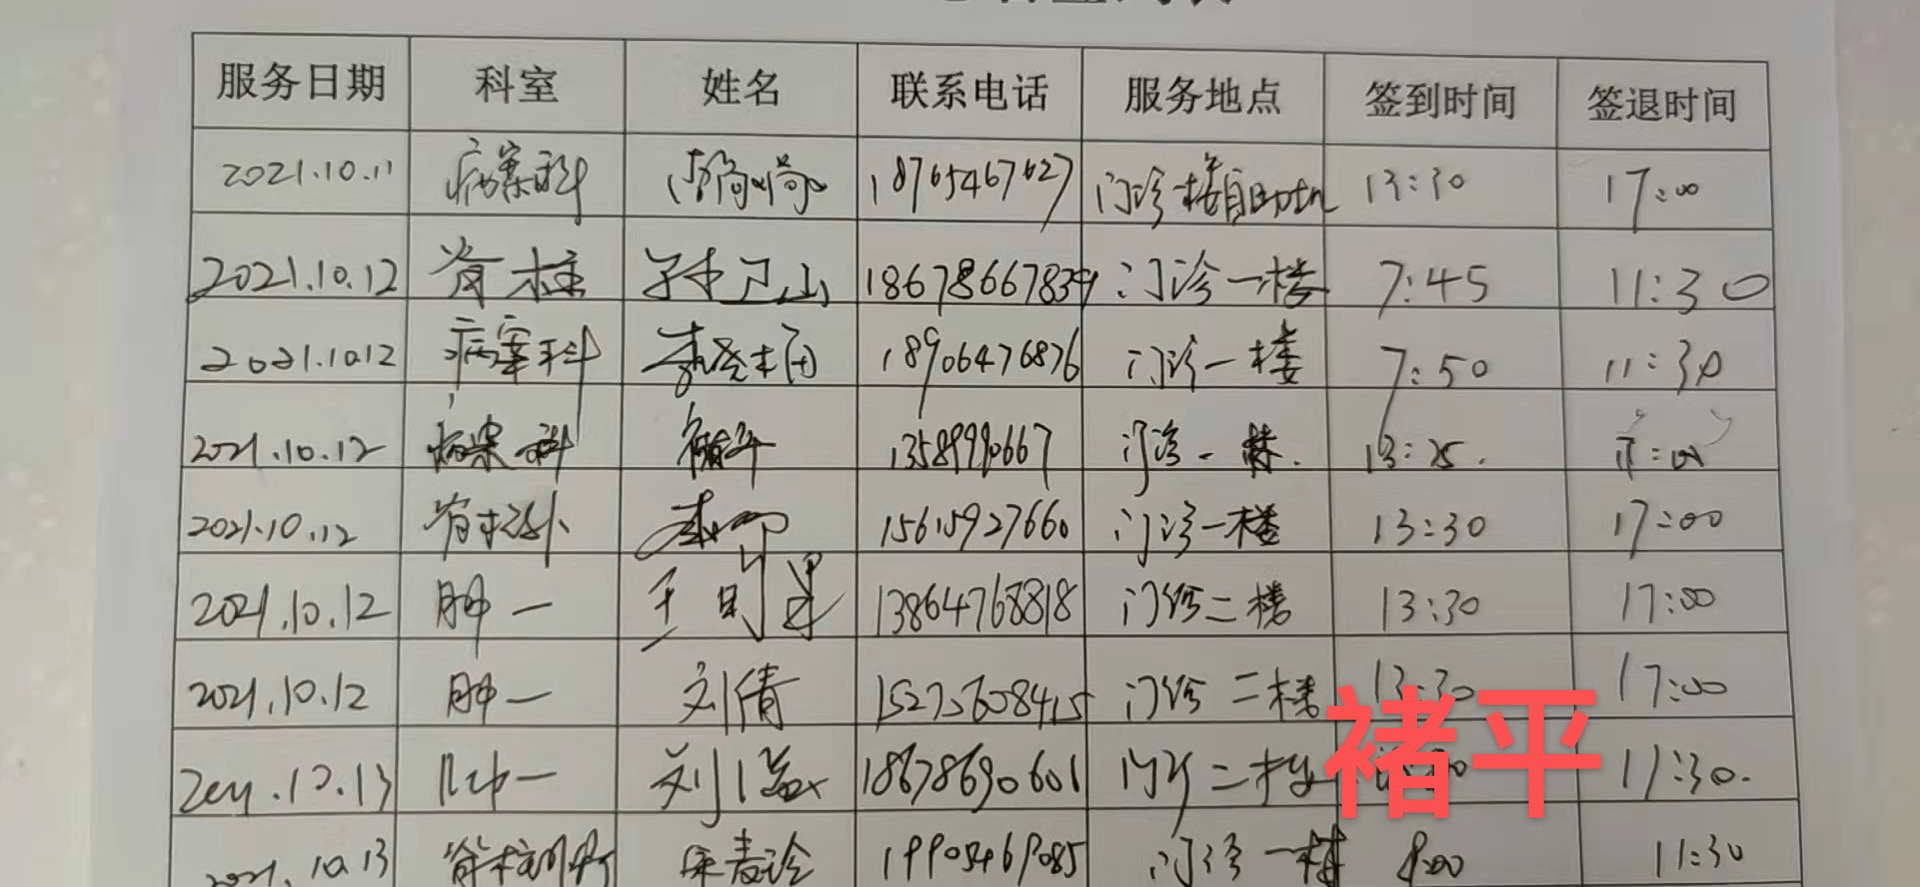 服务日期 科室 姓名 联系电话 服务地点 签到时间 签退时间
2021.10.11 病案科 18765467627 门诊一楼自助机 13:30 17:00
2021.10.12 脊柱 孙卫山 18678667839 门诊一楼 7:45 11:30
2021.10.12 病案科 18906476876 门诊一楼 7:50 11:30
2021.10.12 病案科 褚平 13589990667 门诊一楼. 13:25. 17:00
2021.10.12 脊柱外 15615927660 门诊一楼 13:30 17:00
2021.10.12 肿一 王 13864768818 门诊二楼 13:30 17:00
2021.10.12 肿一 刘倩 15275608415 门诊二楼 13:30 17:00
褚平
2021.10.13 肿一 刘 18678690601 门诊二楼 11:30.
2021.10.13 脊柱 门诊一楼 8:00 11:30